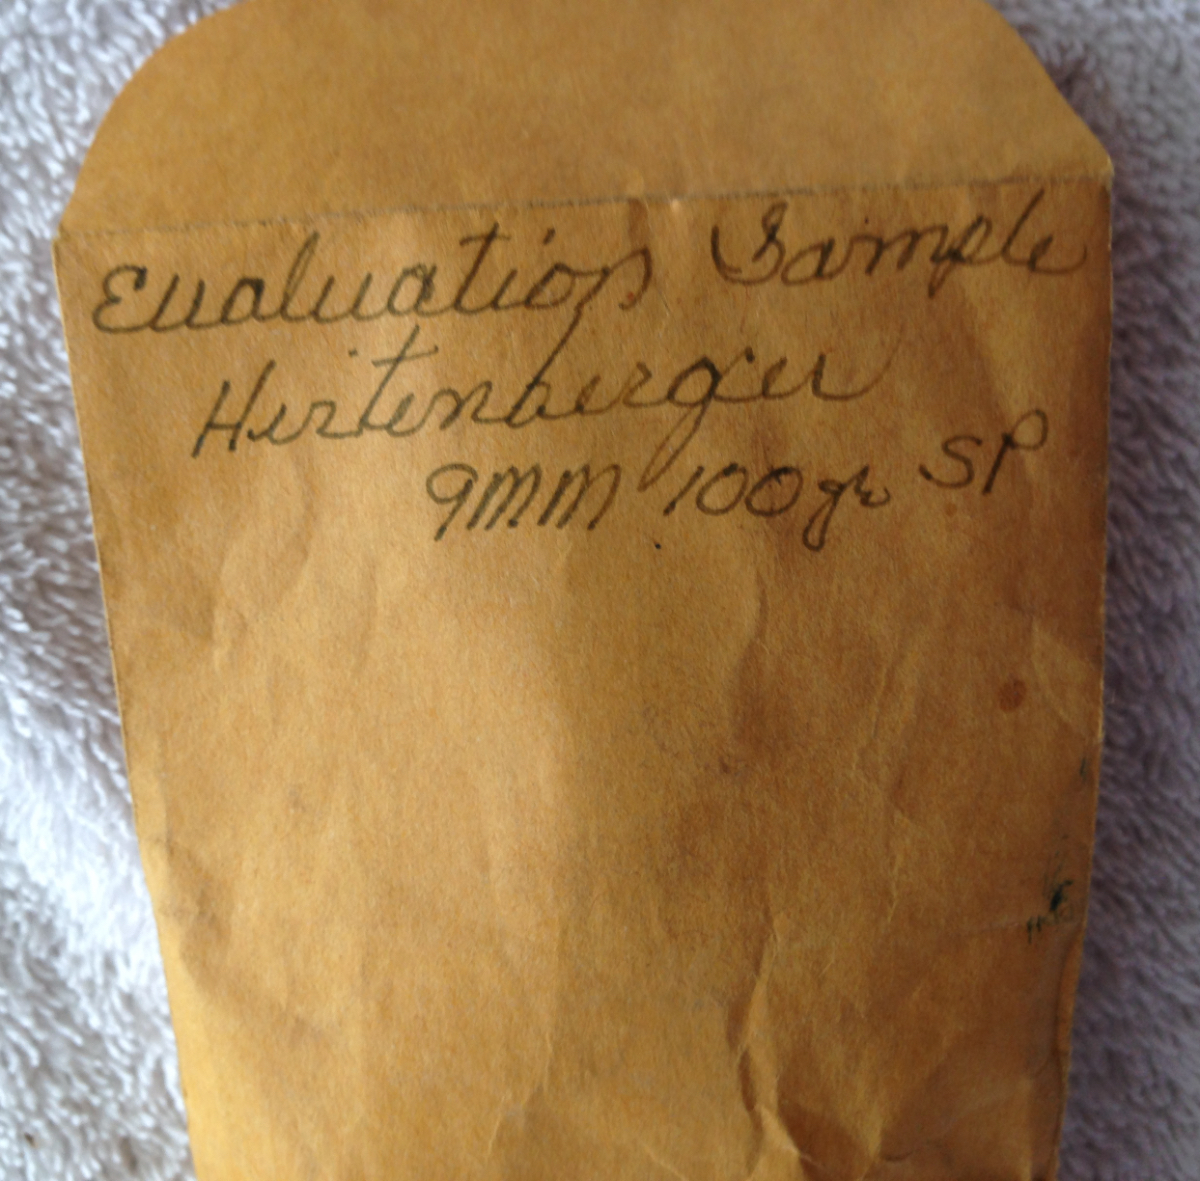 Evaluation Sample
Hirtenberger
9MM 100gr SP